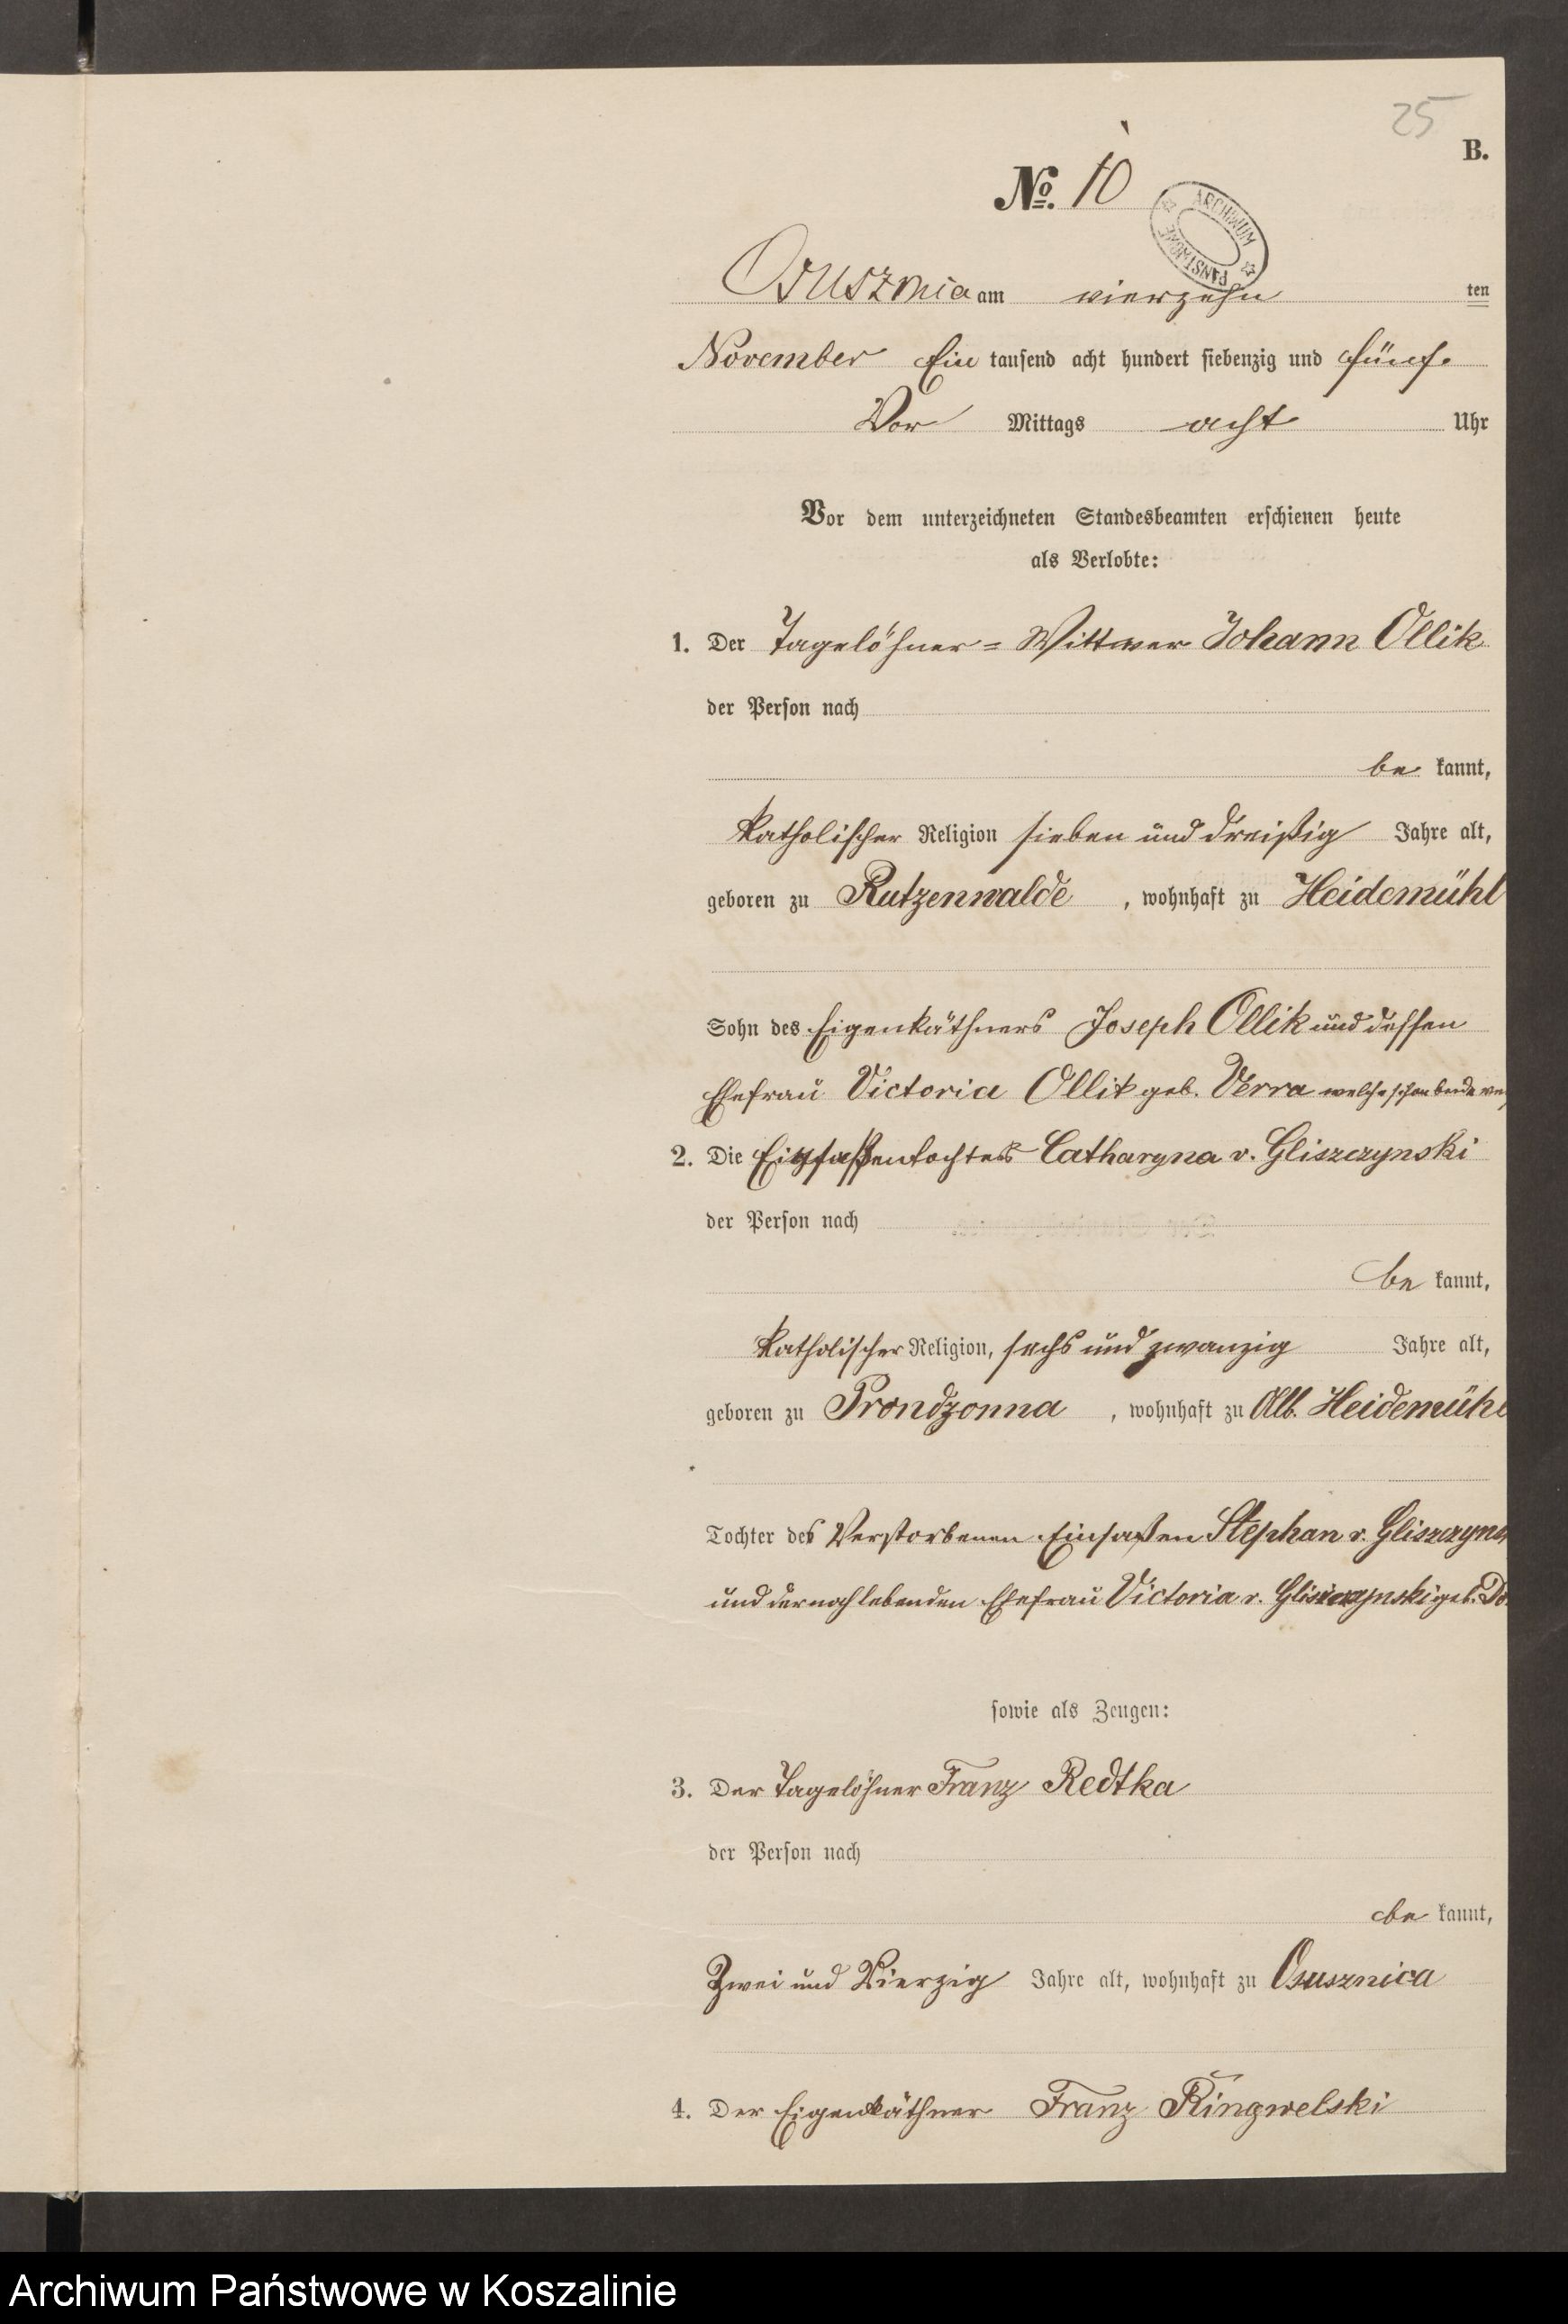 25
B.
No. 10
ARCHIWUM PAŃSTWOWE
Osusznica am vierzehn ten
November Ein tausend acht hundert siebenzig und fünf.
Vor Mittags acht Uhr
Vor dem unterzeichneten Standesbeamten erschienen heute
als Verlobte:
1. Der Tagelöhner = Wittwer Johann Ollik
der Person nach
be kannt,
katholischer Religion sieben und dreißig Jahre alt,
geboren zu Rutzenwalde , wohnhaft zu Heidemühl
Sohn des Eigenkäthners Joseph Ollik und dessen
Ehefrau Victoria Ollik geb. Verra welche schon beide
2. Die Einsaßentochter Catharyna v. Gliszczynski
der Person nach
be kannt,
katholischer Religion, sechs und zwanzig Jahre alt,
geboren zu Prondzonna , wohnhaft zu Alb. Heidemühl
Tochter des Verstorbenen Einsaßen Stephan v. Gliszczyns
und der noch lebenden Ehefrau Victoria v. Gliszczynski geb.
sowie als Zeugen:
3. Der Tagelöhner Franz Redtka
der Person nach
be kannt,
Zwei und Vierzig Jahre alt, wohnhaft zu Osusznica
4. Der Eigenkäthner Franz Ringwelski
Archiwum Państwowe w Koszalinie